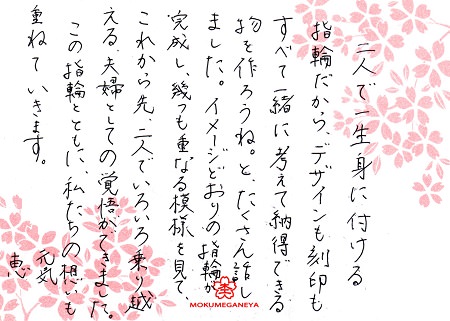 二人で一生身に付ける
指輪だから、デザインも刻印も
すべて一緒に考えて納得できる
物を作ろうね。と、たくさん話し
ました。イメージどおりの指輪が
完成し、幾つも重なる模様を見て、
これから先、二人でいろいろ乗り越
える、夫婦としての覚悟ができました。
この指輪とともに、私たちの想いも
重ねていきます。
元気
恵
MOKUMEGANEYA